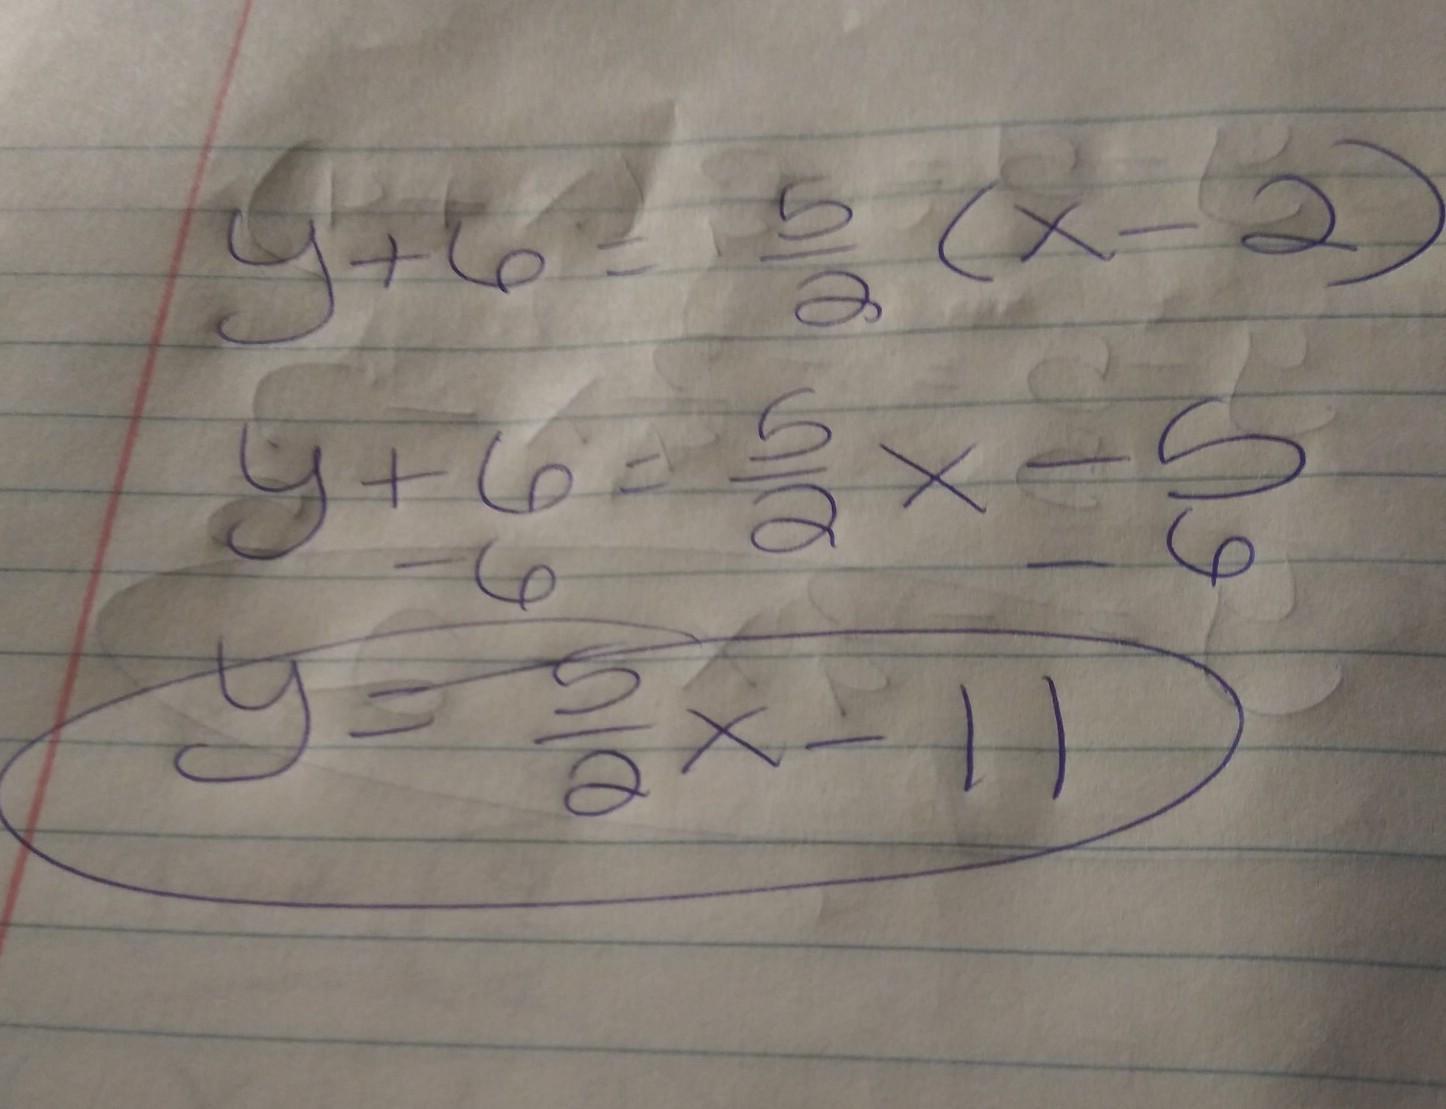 y + 6 = 5/2 (x - 2)
y + 6 = 5/2 x - 5
- 6 - 6
y = 5/2 x - 11